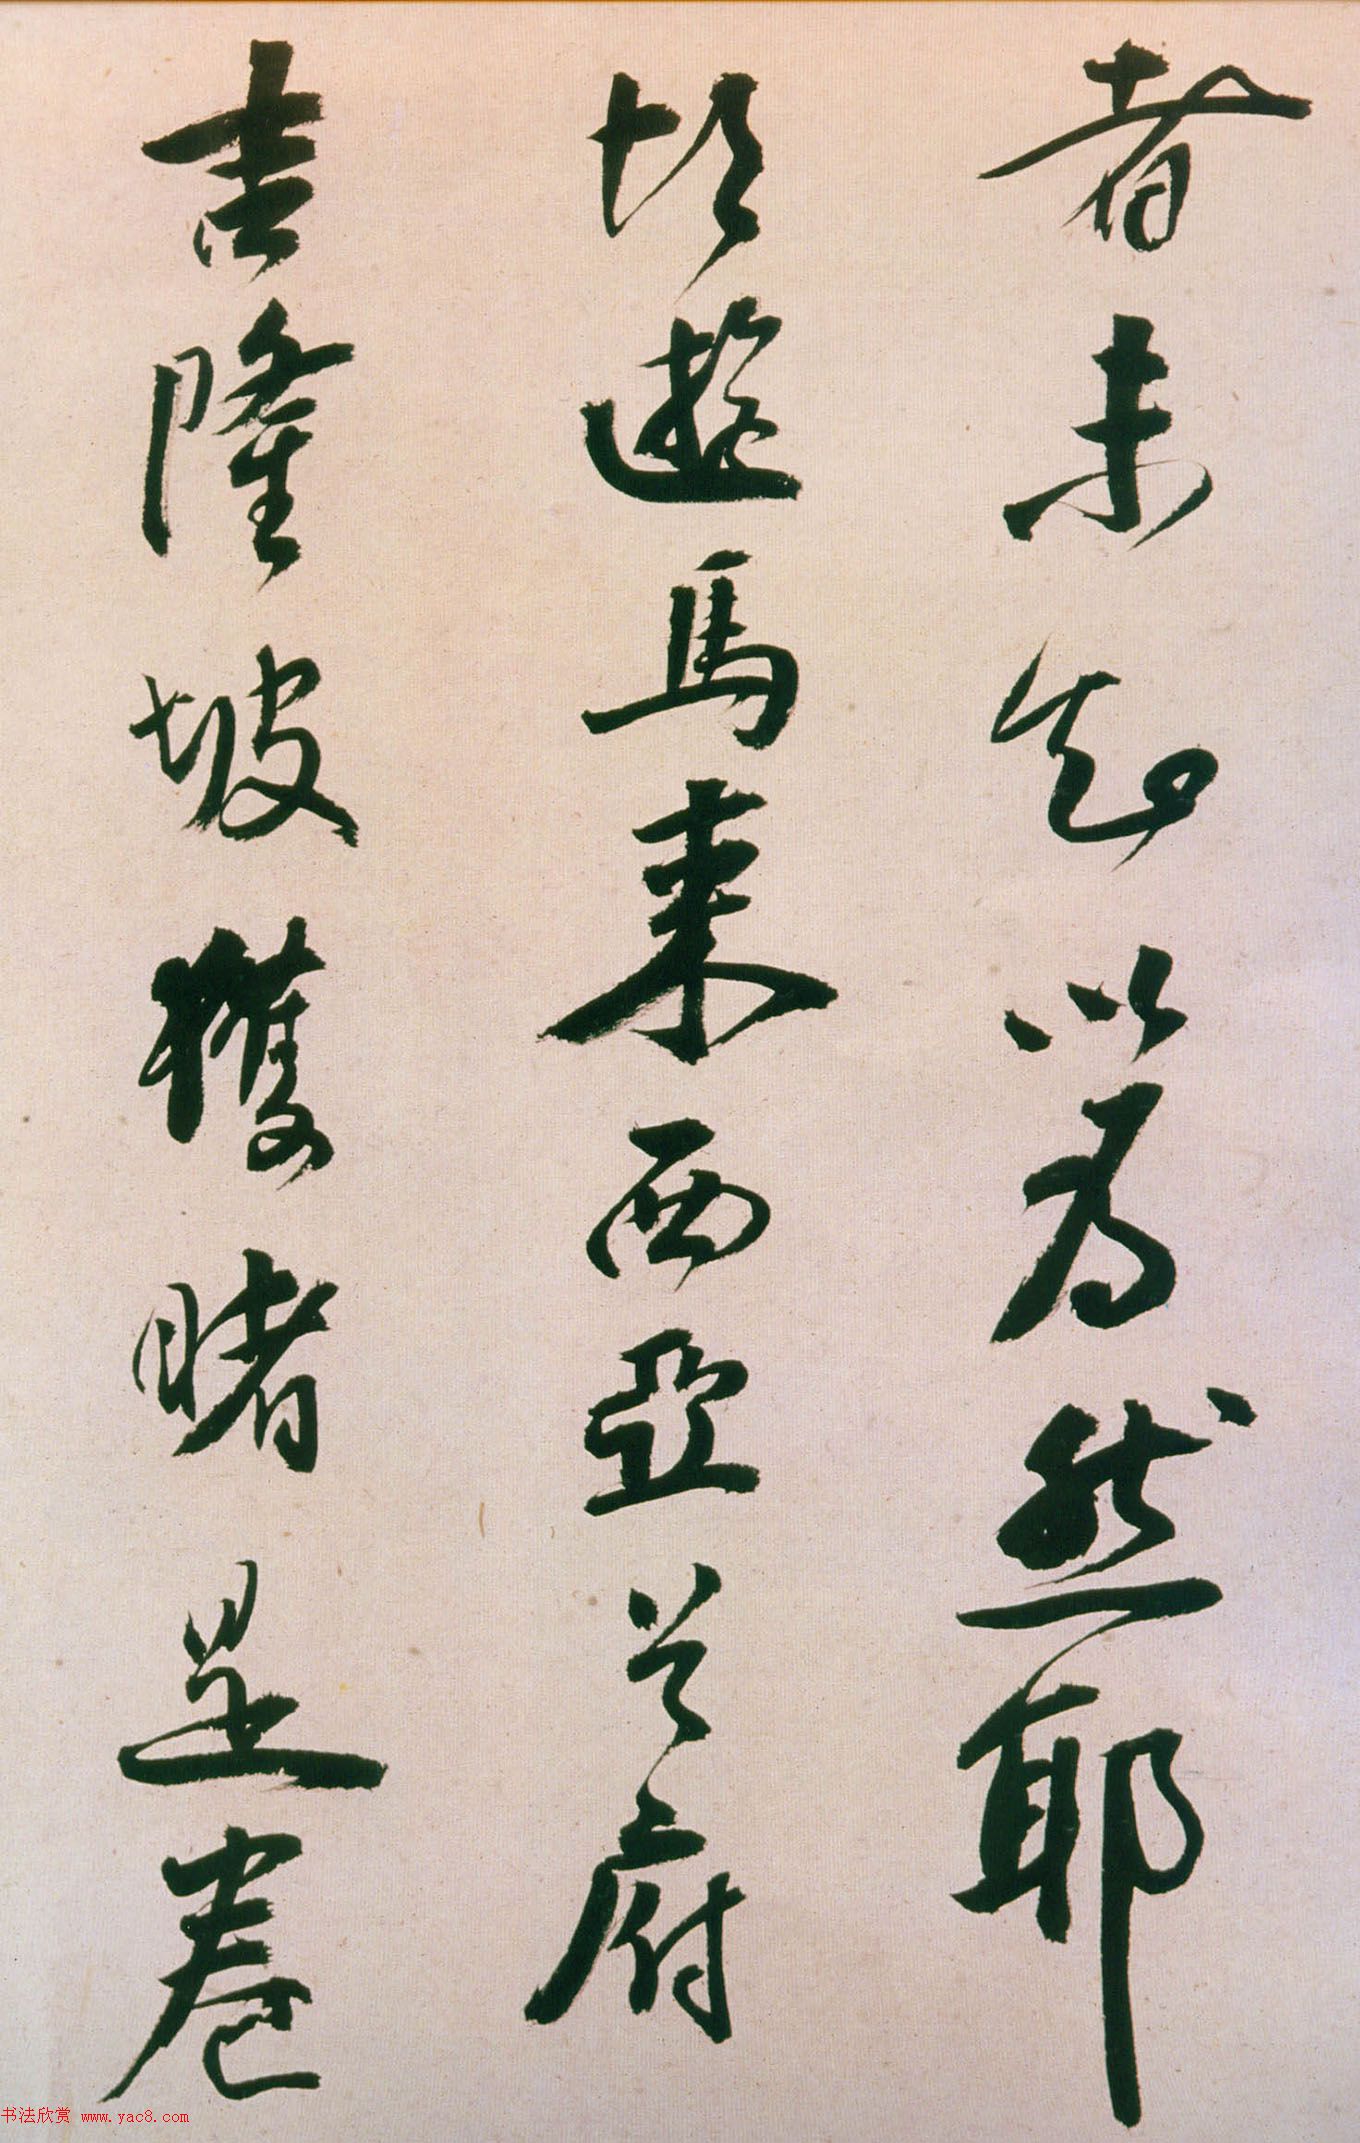 者未知以为然耶
顷遊馬来西亞首府
吉隆坡獲睹是卷
书法欣赏 www.yac8.com